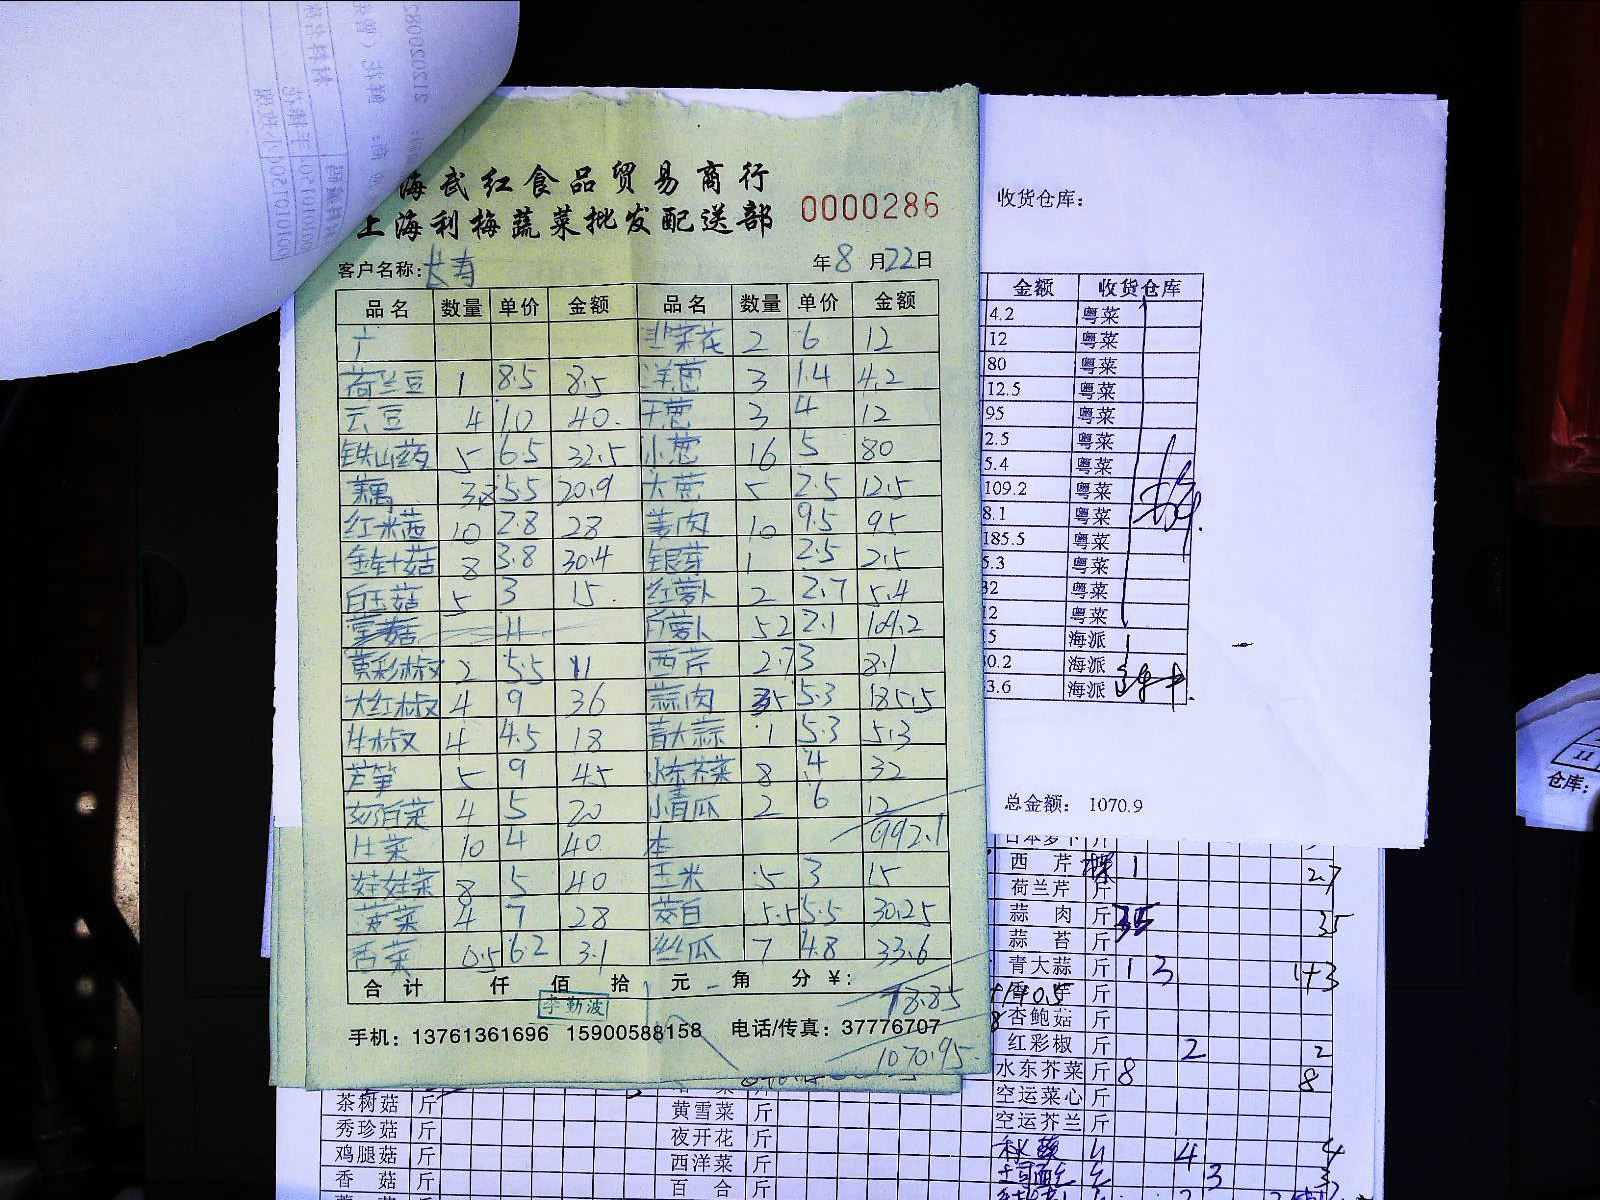 海武红食品贸易商行
上海利梅蔬菜批发配送部 0000286
客户名称: 长寿 年 8 月 22 日
品名 数量 单价 金额 品名 数量 单价 金额
广 韭菜花 2 6 12
荷兰豆 1 8.5 8.5 洋葱 3 1.4 4.2
云豆 4 10 40. 干葱 3 4 12
铁山药 5 6.5 32.5 小葱 16 5 80
藕 3.8 5.5 20.9 大葱 5 2.5 12.5
红米苋 10 2.8 28 姜肉 10 9.5 95
金针菇 8 3.8 30.4 银芽 1 2.5 2.5
白玉菇 5 3 15. 红萝卜 2 2.7 5.4
11 白萝卜 52 2.1 109.2
黄彩椒 2 5.5 11 西芹 2.7 3 8.1
大红椒 4 9 36 蒜肉 35 5.3 185.5
牛椒 4 4.5 18 青大蒜 1 5.3 5.3
芦笋 5 9 45 水东芥菜 8 4 32
4 5 20 小青瓜 2 6 12
生菜 10 4 40 本 992.1
娃娃菜 8 5 40 玉米 5 3 15
菠菜 4 7 28 茭白 5.5 5.5 30.25
香菜 0.5 6.2 3.1 丝瓜 7 4.8 33.6
合计 仟 佰 拾 元 角 分 ¥:
78.85
李勤波
手机: 13761361696 15900588158 电话/传真: 37776707
1070.95
收货仓库:
金额 收货仓库
4.2 粤菜
12 粤菜
80 粤菜
12.5 粤菜
95 粤菜
2.5 粤菜
5.4 粤菜
109.2 粤菜
8.1 粤菜
185.5 粤菜
5.3 粤菜
32 粤菜
12 粤菜
5 海派
0.2 海派
3.6 海派
总金额: 1070.9
日本萝卜 斤
西芹 1 2.7
荷兰芹 斤
蒜肉 斤 35 35
蒜苔 斤
青大蒜 斤 1 3 1+3
香芋 斤
杏鲍菇 斤
红彩椒 斤 2 2
水东芥菜 斤 8 8
空运菜心 斤
空运芥兰 斤
4 4
3 3
茶树菇 斤 黄雪菜 斤
秀珍菇 斤 夜开花 斤
鸡腿菇 斤 西洋菜 斤
香菇 斤 百合 斤
仓库: